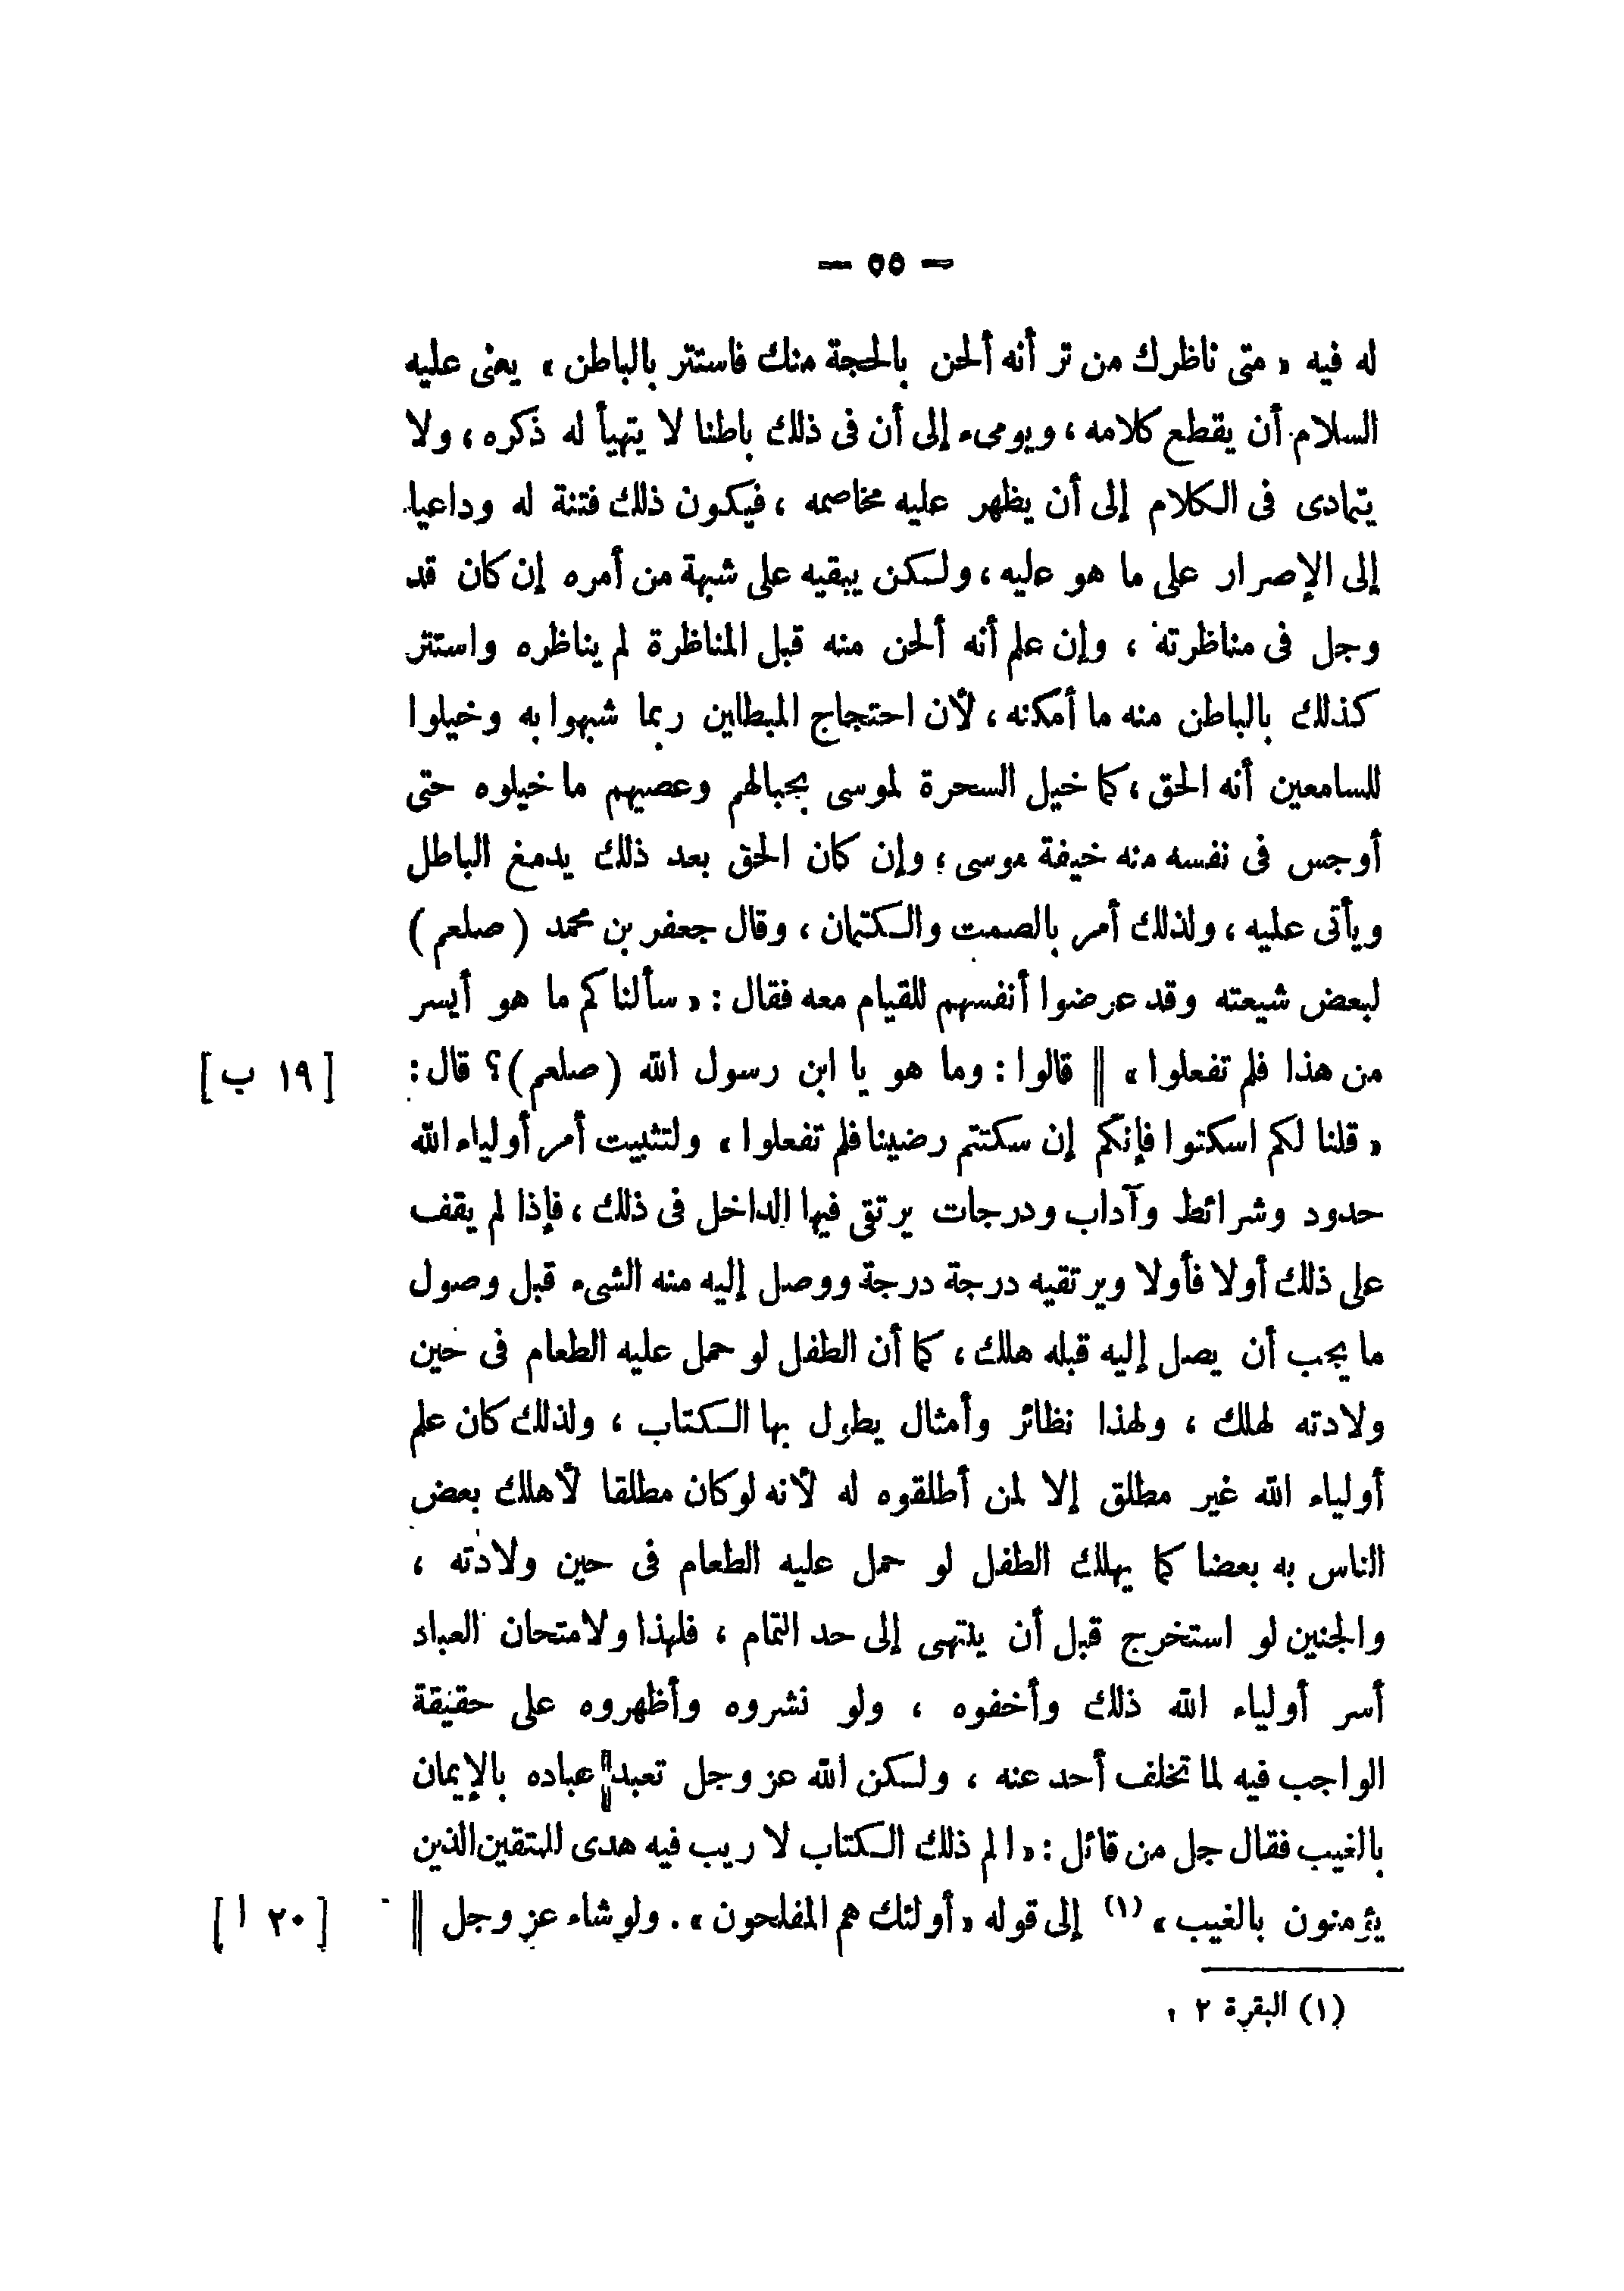 — ٥٥ —
له فيه « متى ناظرك من تر أنه ألحن بالحجة منك فاستتر بالباطن » يعنى عليه
السلام أن يقطع كلامه ، ويومىء إلى أن فى ذلك باطنا لا يتهيأ له ذكره ، ولا
يتمادى فى الكلام إلى أن يظهر عليه مخاصمه ، فيكون ذلك فتنة له وداعيا
إلى الإصرار على ما هو عليه ، ولكن يبقيه على شبهة من أمره إن كان قد
وجل فى مناظرته ، وإن علم أنه ألحن منه قبل المناظرة لم يناظره واستتر
كذلك بالباطن منه ما أمكنه ، لأن احتجاج المبطلين ربما شبهوا به وخيلوا
للسامعين أنه الحق ، كما خيل السحرة لموسى بحبالهم وعصيهم ما خيلوه حتى
أوجس فى نفسه منه خيفة موسى ؛ وإن كان الحق بعد ذلك يدمغ الباطل
ويأتى عليه ، ولذلك أمر بالصمت والكتمان ، وقال جعفر بن محمد ( صلعم )
لبعض شيعته وقد عرضوا أنفسهم للقيام معه فقال : « سألناكم ما هو أيسر
من هذا فلم تفعلوا » || قالوا : وما هو يا ابن رسول الله ( صلعم ) ؟ قال : [ ١٩ ب ]
« قلنا لكم اسكتوا فإنكم إن سكتتم رضينا فلم تفعلوا » ولتثبيت أمر أولياء الله
حدود وشرائط وآداب ودرجات يرتقى فيها الداخل فى ذلك ، فإذا لم يقف
على ذلك أولا فأولا ويرتقيه درجة درجة ووصل إليه منه الشىء قبل وصول
ما يجب أن يصل إليه قبله هلك ، كما أن الطفل لو حمل عليه الطعام فى حين
ولادته لهلك ، ولهذا نظائر وأمثال يطول بها الكتاب ، ولذلك كان علم
أولياء الله غير مطلق إلا لمن أطلقوه له لأنه لو كان مطلقا لأهلك بعض
الناس به بعضا كما يهلك الطفل لو حمل عليه الطعام فى حين ولادته ،
والجنين لو استخرج قبل أن ينتهى إلى حد التمام ، فلهذا ولامتحان العباد
أسر أولياء الله ذلك وأخفوه ، ولو نشروه وأظهروه على حقيقة
الواجب فيه لما تخلف أحد عنه ، ولكن الله عز وجل تعبد || عباده بالإيمان
بالغيب فقال جل من قائل : « الم ذلك الكتاب لا ريب فيه هدى للمتقين الذين
يؤمنون بالغيب » (١) إلى قوله « أولئك هم المفلحون » . ولو شاء عز وجل || [ ٢٠ ا ]
(١) البقرة ٢ .